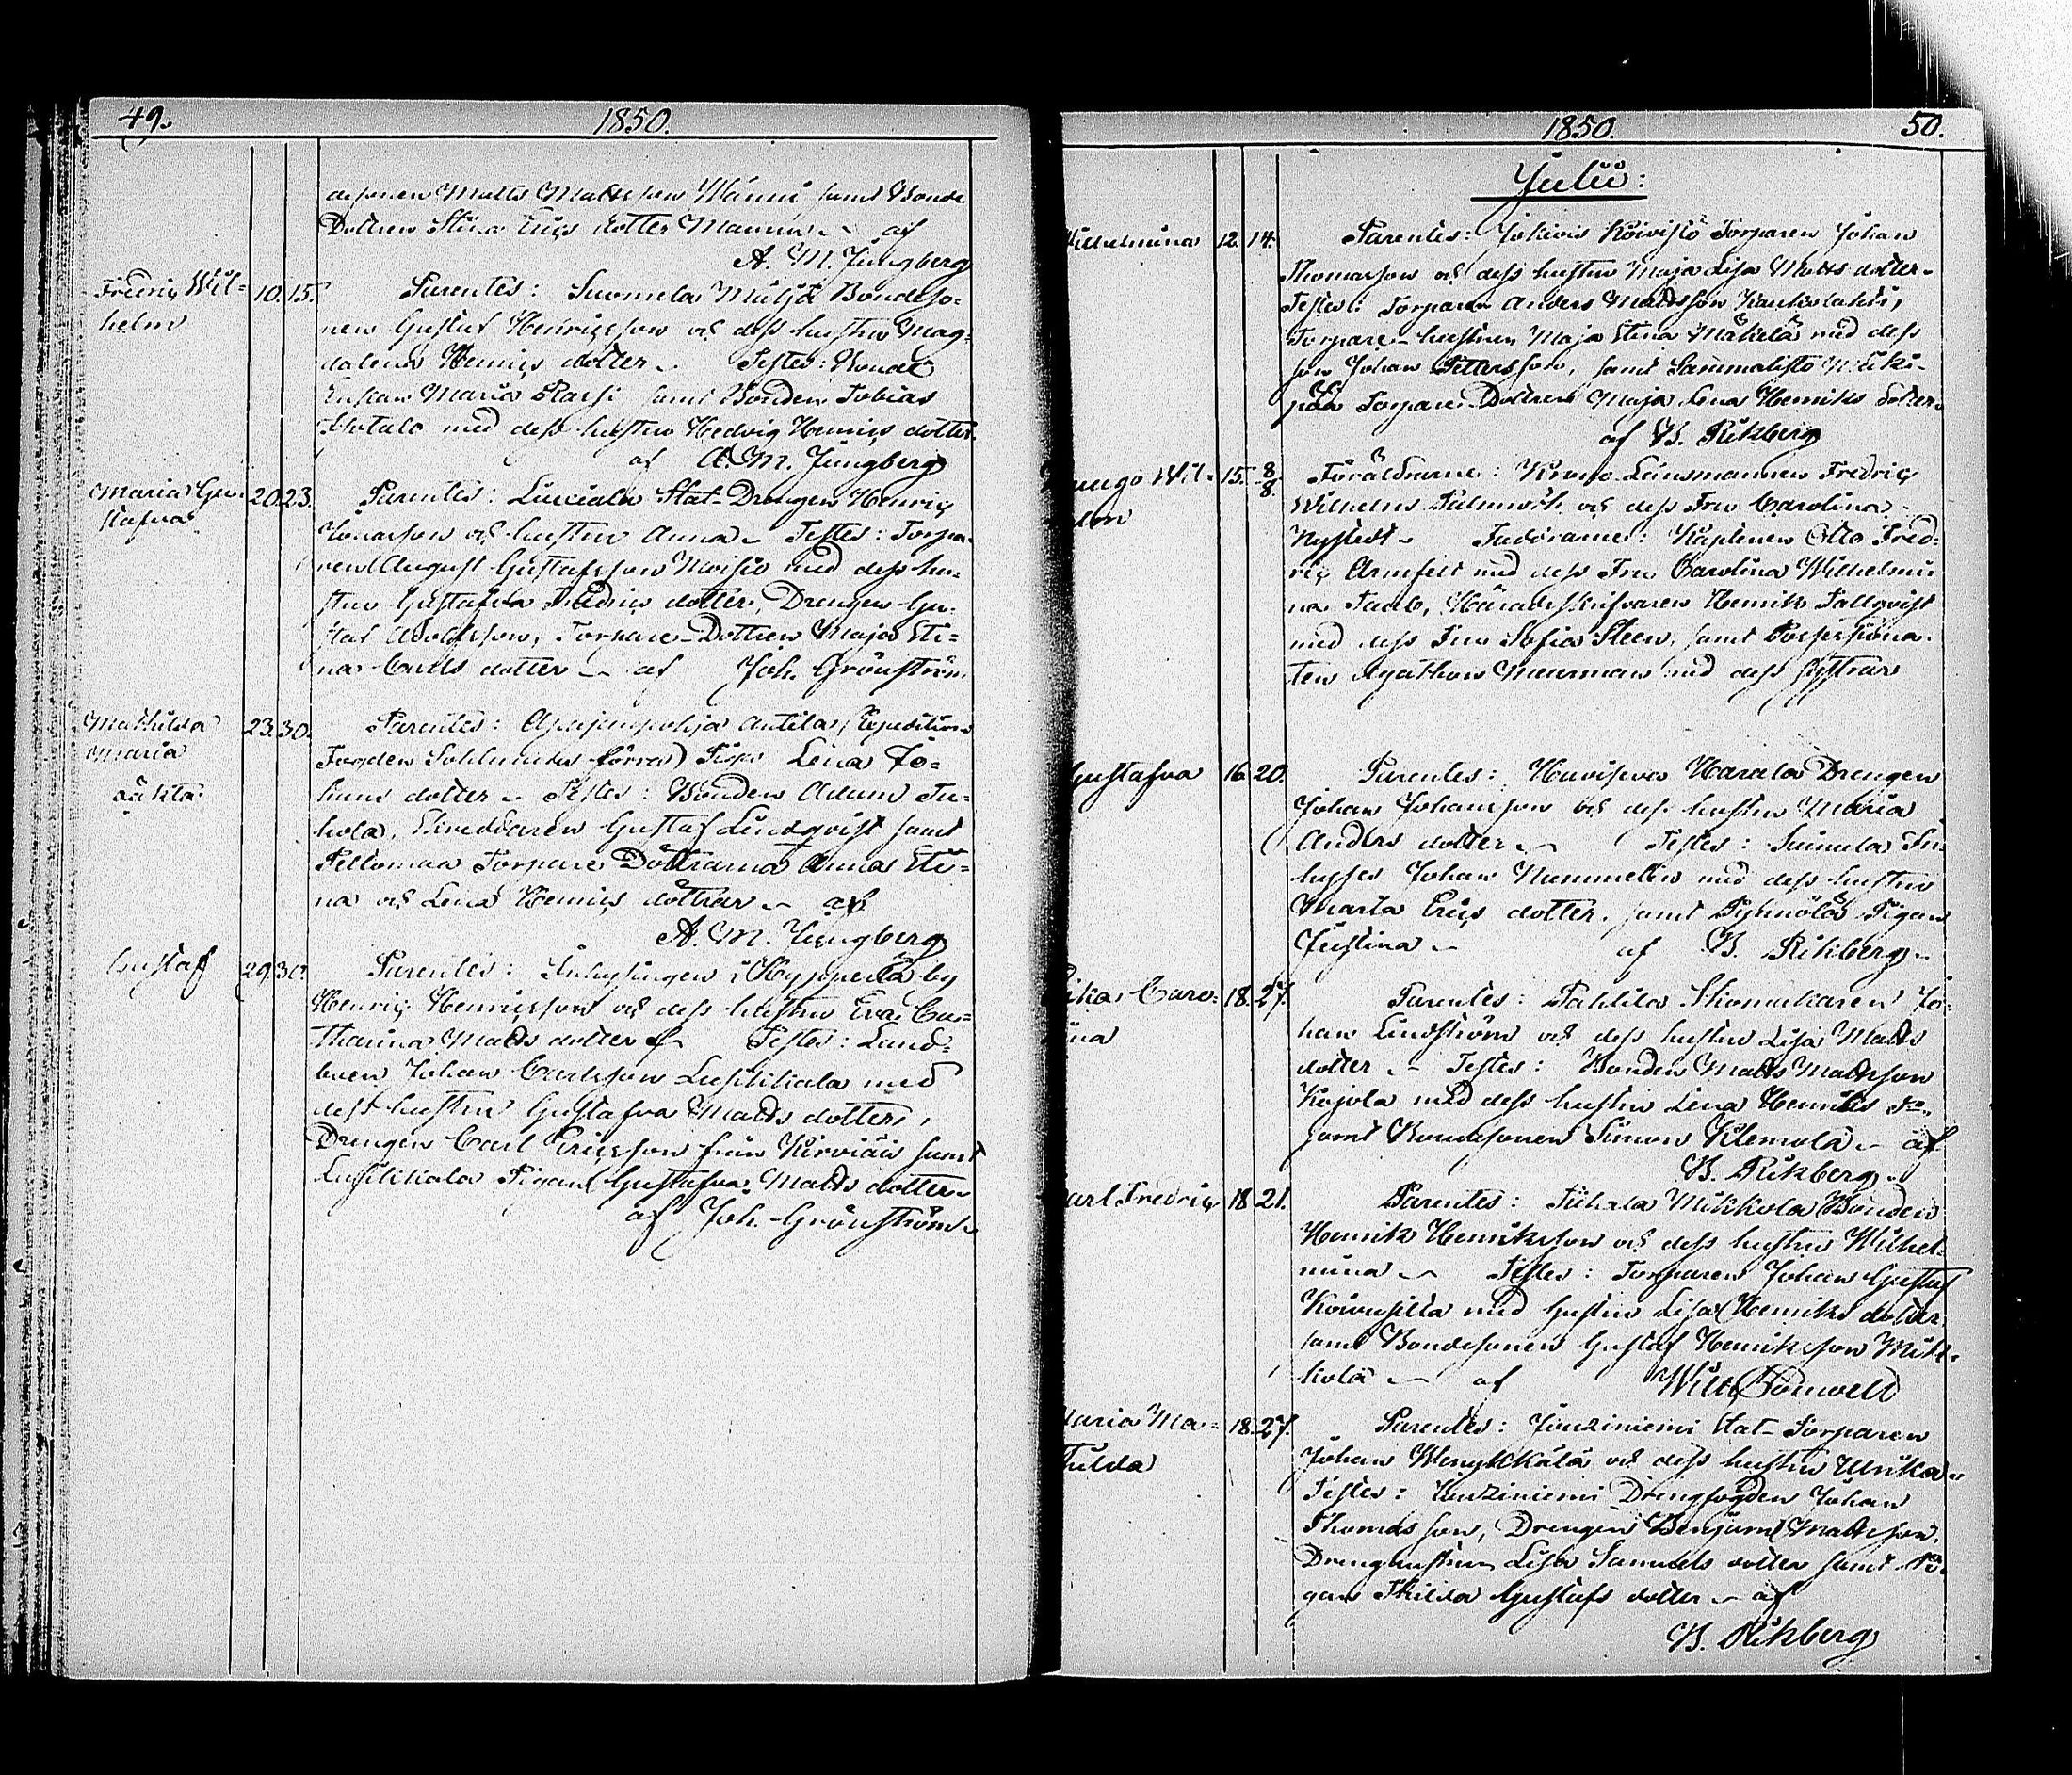 49.
1850.
desonen Matts Mattsson Männi samt Bonde
Dottren Stina Erics dotter Mannin af
A. M. Jungberg
Fredric Wil=
helm
10. 15.
Parentes: Suomela Bondeso=
nen Gustaf Henricsson och dess hustru Mag=
dalena Henrics dotter Testes: Bonde
Enkan Maria samt Bonden Tobias
med dess hustru Hedvig Henrics dotter
af A. M. Jungberg
Maria Gu=
stafva
20. 23.
Parentes: Stat-Drengen Henric
och hustru Anna Testes: Torpa=
ren August Gustafsson Moisio med dess hu=
stru Gustafva Fredrics dotter, Drengen Gu=
staf Adolfsson, Torpare-Dottren Maja Sti=
na Carls dotter af Joh. Grönström
Mathilda
Maria
oäkta
23. 30.
Parentes: Antila (Expeditions
Fogden förra) Piga Lena Jo=
hans dotter Testes: Bonden Adam Ju=
hola, Gustaf Lindqvist samt
Peltomaa Torpare Döttrarna Anna Sti=
na och Lena Henrics döttrar af
A. M. Jungberg
Gustaf
29. 30.
Parentes: Inhysingen i by
Henric Henricsson och dess hustru Eva Ca=
tharina Matts dotter Testes: Land=
boen Johan Carlsson Lusikkala med
dess hustru Gustafva Matts dotter,
Drengen Carl Ericsson från samt
Lusikkala Pigan Gustafva Matts dotter
af Joh. Grönström
1850.
50.
Julii:
Wilhelmina
12. 14.
Parentes: Jokiois Koivisto Torparen Johan
Thomasson och dess hustru Maja Lisa Matts dotter
Testes: Torparen Anders Mattsson Kaukolahti,
Torpare-hustrun Maja Stina Mäkelä med dess
son Johan Pettersson, samt Sammalisto
Torpare Dottren Maja Lena Henriks dotter
af B. Rikberg
Wil=
15. 8/8.
Föräldrarne: Krono Länsmannen Fredric
Wilhelm Palmroth och dess Fru Carolina
Nystedt Faddrarne: Kaptenen Otto Fred=
ric Armfelt med dess Fru Carolina Wilhelmi=
na Taube, Häradsskrifvaren Henrik Fallqvist
med dess Fru Sofia Steen, samt Possessiona=
ten Agathon Meurman med dess systrar
Gustafva
16. 20.
Parentes: Haarala Drengen
Johan Johansson och dess hustru Maria
Anders dotter Testes: In=
hyses Johan Nummelin med dess hustru
Maria Erics dotter, samt Pigan
Justina af B. Rikberg
Caro=
18. 27.
Parentes: Pahkila Skomakaren Jo=
han Lindström och dess hustru Lisa Matts
dotter Testes: Bonden Matts Mattsson
Kojola med dess hustru Lena Henriks dr
samt Bondesonen Simon Klemola af
B. Rikberg
Carl Fredric
18 21.
Parentes: Mikkola Bonden
Henrik Henriksson och dess hustru Wilhel=
mina Testes: Torparen Johan Gustaf
Koivusilta med hustru Lisa Henriks dotter
samt Bondesonen Gustaf Henriksson Mik=
kola af
Maria Ma=
thilda
18. 27.
Parentes: Stat-Torparen
Johan och dess hustru Ulrika
Testes: Drengfogden Johan
Thomasson, Drengen Benjam. Mattsson,
Drenghustrun Lisa Samuels dotter samt Pi=
gan Thilda Gustafs dotter af
B. Rikberg